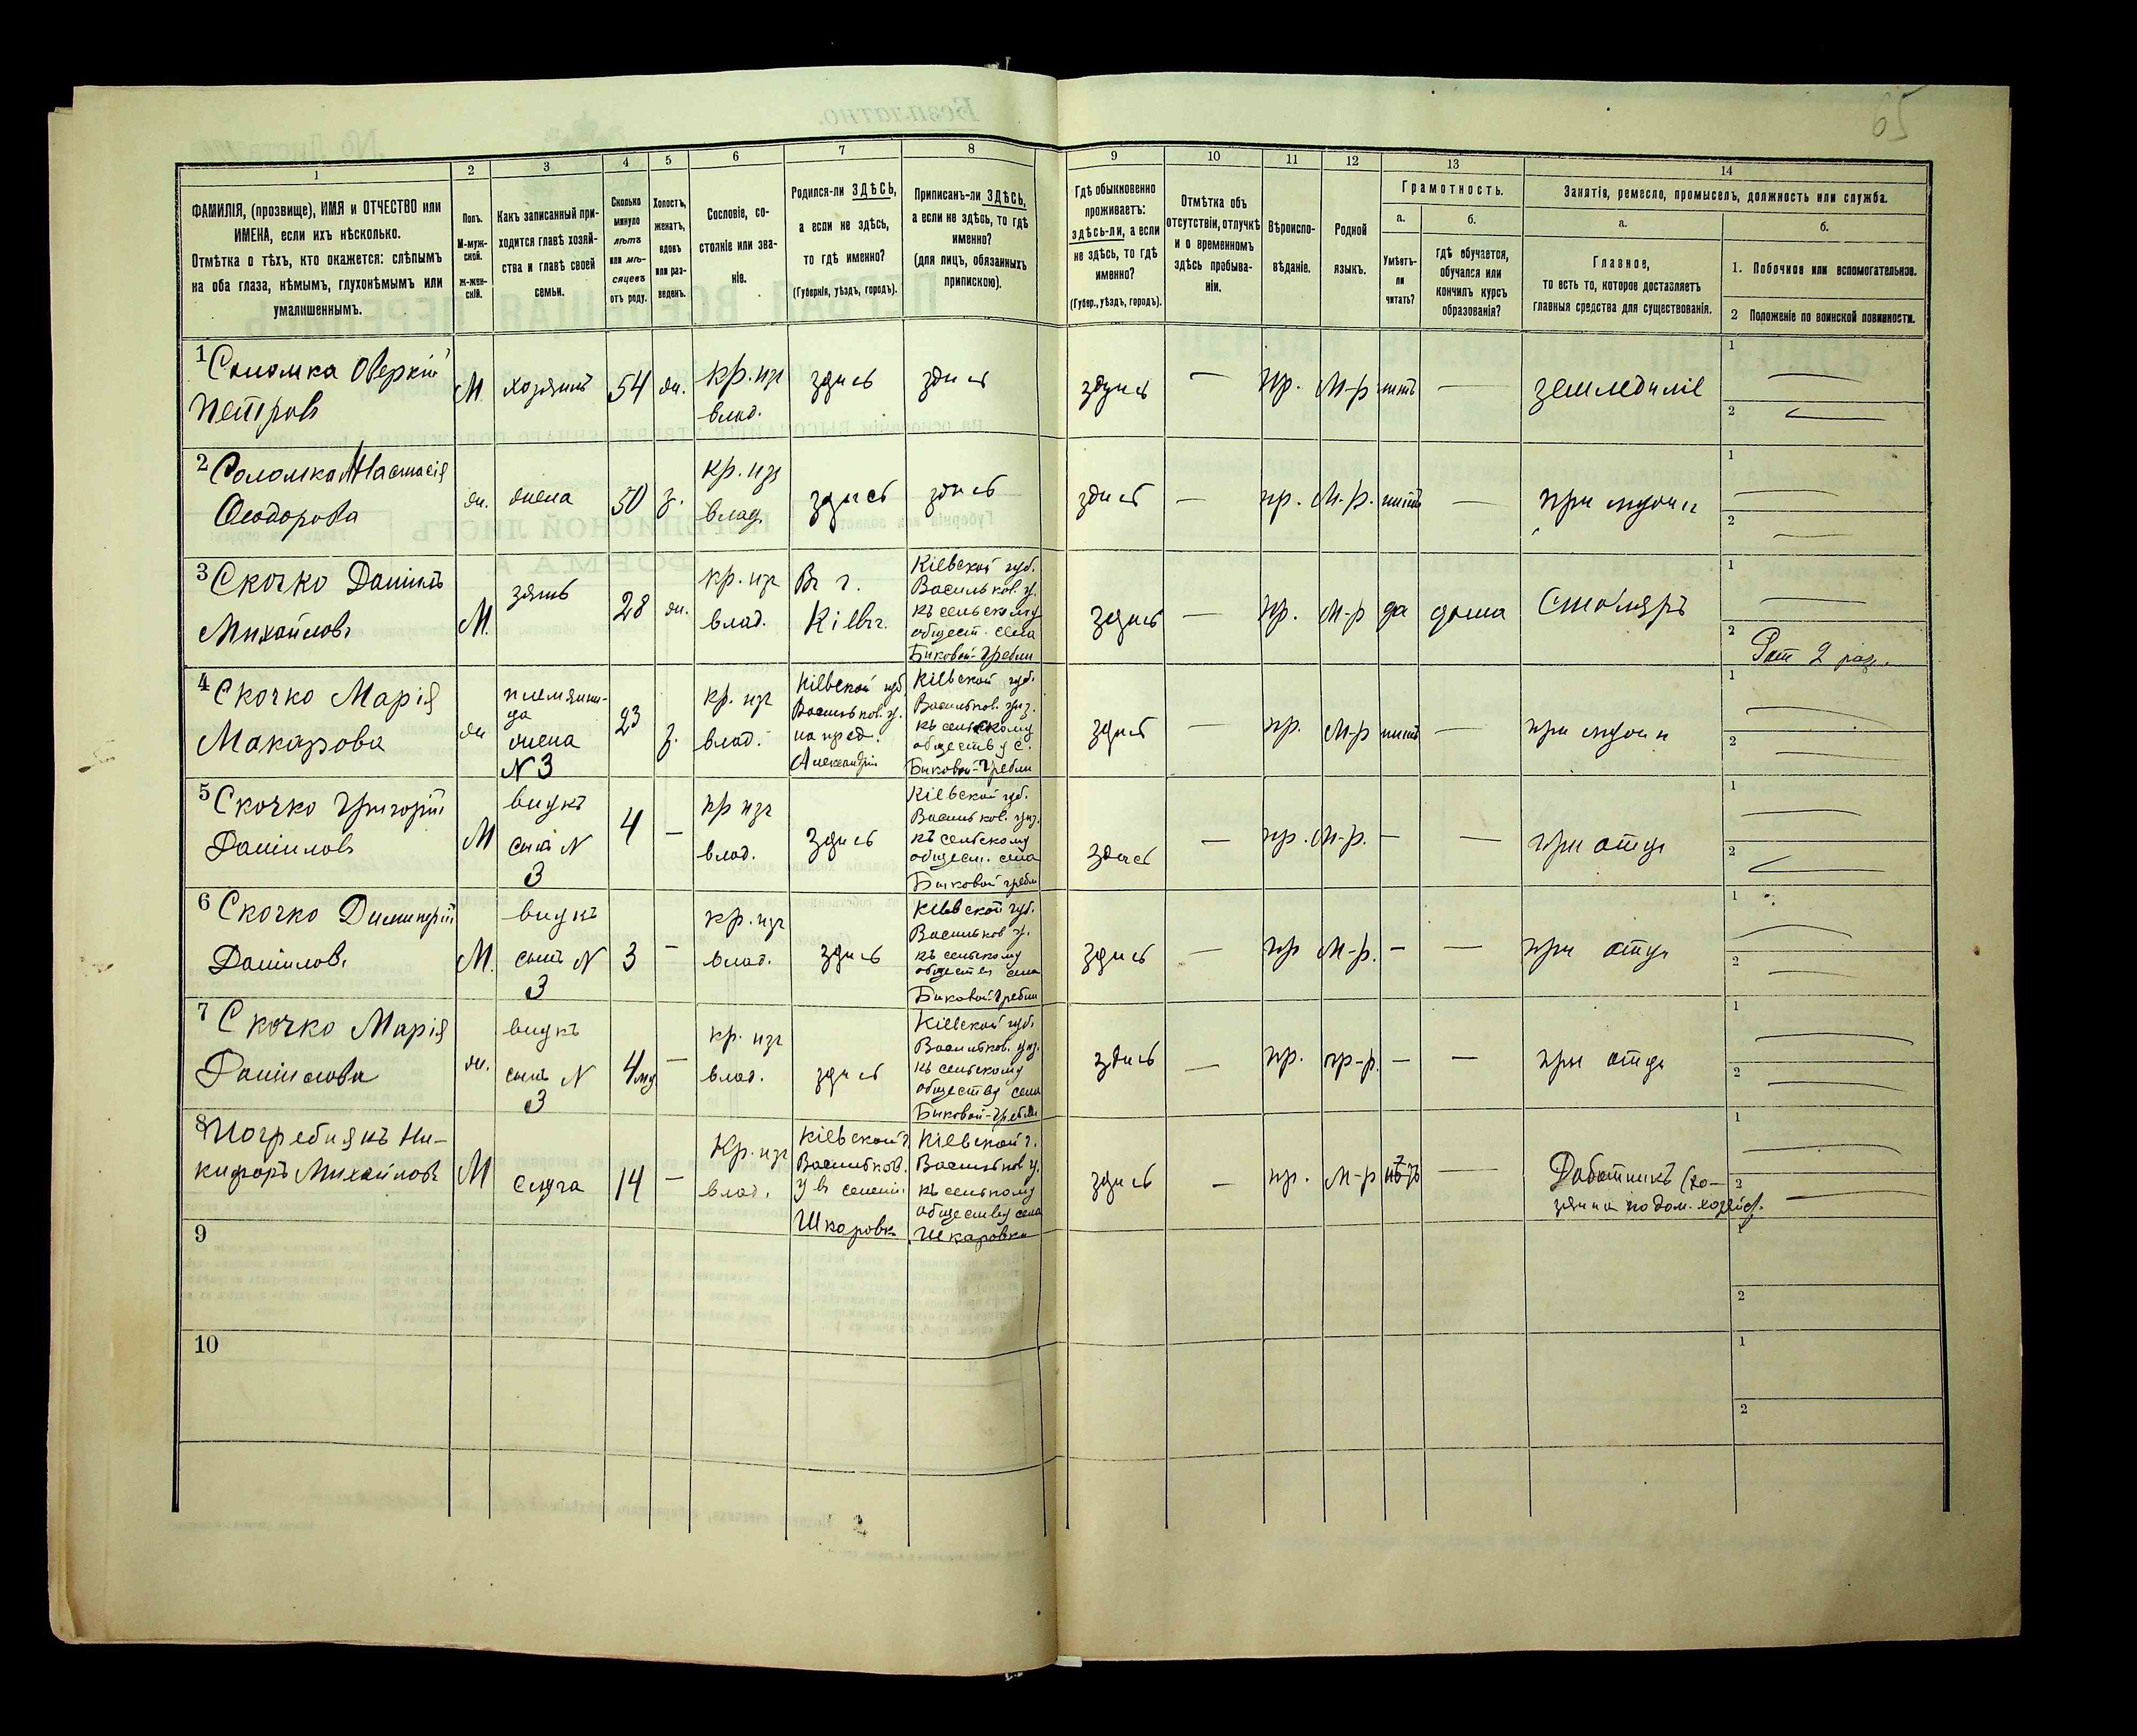 65
1 2 3 4 5 6 7 8 9 10 11 12 13 14
ФАМИЛІЯ, (прозвище), ИМЯ и ОТЧЕСТВО или
ИМЕНА, если ихъ нѣсколько.
Отмѣтка о тѣхъ, кто окажется: слѣпымъ
на оба глаза, нѣмымъ, глухонѣмымъ или
умалишеннымъ.
Полъ.
М-муж-
ской.
Ж-жен-
скій.
Какъ записанный при-
ходится главѣ хозяй-
ства и главѣ своей
семьи.
Сколько
минуло
лѣтъ
или мѣ-
сяцевъ
отъ роду.
Холостъ,
женатъ,
вдовъ
или раз-
веденъ.
Сословіе, со-
стояніе или зва-
ніе.
Родился-ли ЗДѢСЬ,
а если не здѣсь,
то гдѣ именно?
(Губернія, уѣздъ, городъ).
Приписанъ-ли ЗДѢСЬ,
а если не здѣсь, то гдѣ
именно?
(для лицъ, обязанныхъ
припискою).
Гдѣ обыкновенно
проживаетъ:
здѣсь-ли, а если
не здѣсь, то гдѣ
именно?
(Губер., уѣздъ, городъ).
Отмѣтка объ
отсутствіи, отлучкѣ
и о временномъ
здѣсь пребыва-
ніи.
Вѣроиспо-
вѣданіе.
Родной
языкъ.
Грамотность.
а.
Умѣетъ-
ли
читать?
б.
гдѣ обучается,
обучался или
кончилъ курсъ
образованія?
Занятія, ремесло, промыселъ, должность или служба.
а.
Главное,
то есть то, которое доставляетъ
главныя средства для существованія.
б.
1. Побочное или вспомогательное.
2 Положеніе по воинской повинности.
1 Соломка Оверкій
Петровъ
М. хозяинъ 54 ж. кр. изъ
влад.
здѣсь здѣсь здѣсь — пр. М-р нѣтъ — земледѣліе
1 —
2 —
2 Соломка Настасія
Ѳеодорова
ж. жена 50 з. кр. изъ
влад.
здѣсь здѣсь здѣсь — пр. М-р. нѣтъ — при мужѣ
1 —
2 —
3 Скочко Даніилъ
Михайловъ
М. зять 28 ж. кр. изъ
влад.
Въ г.
Кіевѣ.
Кіевской губ.
Васильков. у.
къ сельскому
общест. села
Биковой-Гребли
здѣсь — пр. М-р да дома Столяръ
1 —
2 Рат 2 раз.
4 Скочко Марія
Макарова
ж
племянни-
ца
жена
N 3
23 з. кр. изъ
влад.
Кіевской губ.
Васильков. у.
на пред.
Александрія
Кіевской губ.
Васильков. уѣз.
къ сельскому
обществу с.
Биковой-Гребли
здѣсь — пр. М-р нѣтъ — при мужѣ
1 —
2 —
5 Скочко Григорій
Даніиловъ
М
внукъ
сынъ N
3
4 — кр изъ
влад.
здѣсь
Кіевской губ.
Васильков. уѣз.
къ сельскому
общест. села
Биковой гребли
здѣсь — пр. М-р. — — при отцѣ
1 —
2 —
6 Скочко Димитрій
Даніиловъ
М.
внукъ
сынъ N
3
3 — кр. изъ
влад.
здѣсь
Кіевской губ.
Васильков у.
къ сельскому
общества села
Биковой-Гребли
здѣсь — пр М-р. — — при отцѣ
1 —
2 —
7 Скочко Марія
Даніилова
ж.
внукъ
сынъ N
3
4 мѣ — кр. изъ
влад.
здѣсь
Кіевской губ.
Васильков. уѣз.
къ сельскому
обществу села
Биковой-Гребли
здѣсь — пр. пр-р. — — при отцѣ
1 —
2 —
8 Погребнякъ Ни-
кифоръ Михайловъ
М слуга 14 — Кр. изъ
влад.
Кіевской г.
Васильков.
у въ селеніи
Шкаровка
Кіевской г.
Васильков у.
къ сельскому
обществу села
Шкаровки
здѣсь — пр. М-р нѣтъ — Работникъ (хо-
зяина по дом. хозяйст.
1 —
2 —
9
1
2
10
1
2